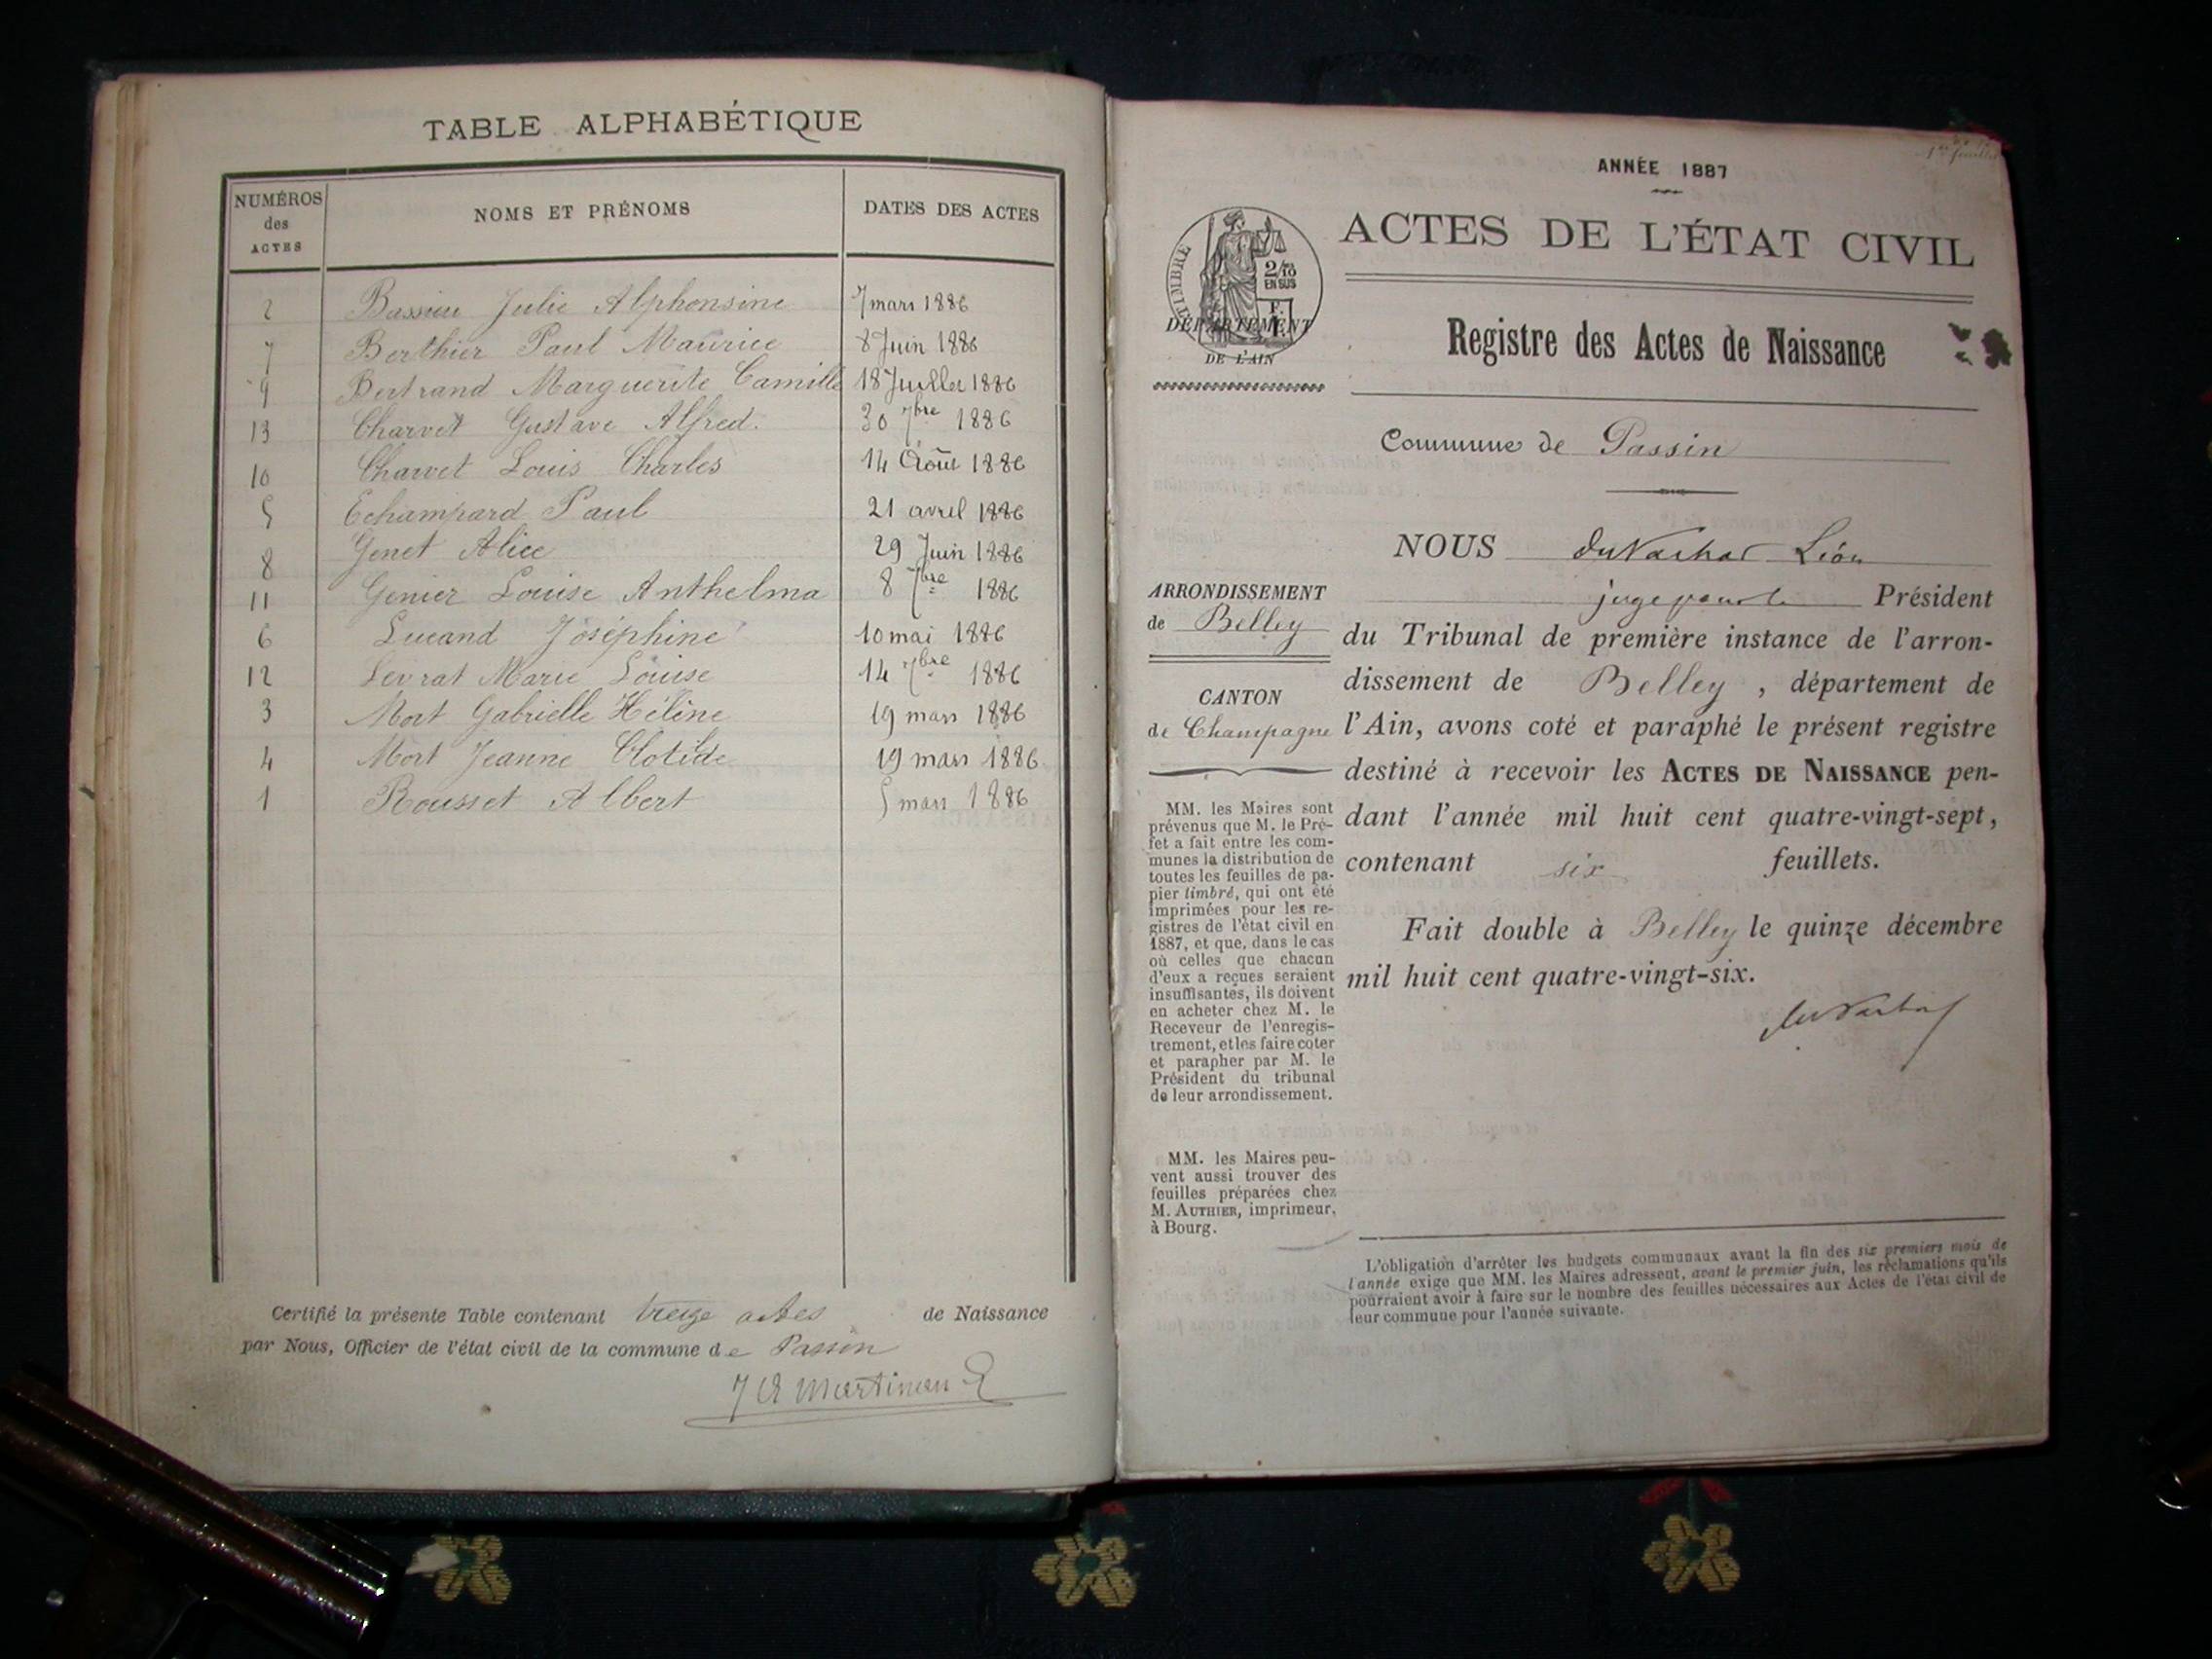 TABLE ALPHABÉTIQUE
NUMÉROS des ACTES NOMS ET PRÉNOMS DATES DES ACTES
2 Bassieu Julie Alphonsine 7 mars 1886
7 Berthier Paul Maurice 8 Juin 1886
9 Bertrand Marguerite Camille 18 Juillet 1886
13 Charvet Gustave Alfred. 30 7bre 1886
10 Charvet Louis Charles 14 Août 1886
5 Echampard Paul 21 avril 1886
8 Genet Alice 29 Juin 1886
11 Genier Louise Anthelma 8 7bre 1886
6 Lucand Joséphine 10 mai 1886
12 Levrat Marie Louise 14 7bre 1886
3 Mort Gabrielle Hélène 19 mars 1886
4 Mort Jeanne Clotilde 19 mars 1886.
1 Rousset Albert 5 mars 1886
Certifié la présente Table contenant treize actes de Naissance
par Nous, Officier de l'état civil de la commune de Passin
Martinand
1er feuillet
ANNÉE 1887
ACTES DE L'ÉTAT CIVIL
TIMBRE
2/10 EN SUS
DÉPARTEMENT
DE L'AIN
Registre des Actes de Naissance
Commune de Passin
NOUS Léon
juge pour le Président
du Tribunal de première instance de l'arron-
dissement de Belley, département de
l'Ain, avons coté et paraphé le présent registre
destiné à recevoir les ACTES DE NAISSANCE pen-
dant l'année mil huit cent quatre-vingt-sept,
contenant six feuillets.
Fait double à Belley le quinze décembre
mil huit cent quatre-vingt-six.
ARRONDISSEMENT
de Belley
CANTON
de Champagne
MM. les Maires sont
prévenus que M. le Pré-
fet a fait entre les com-
munes la distribution de
toutes les feuilles de pa-
pier timbré, qui ont été
imprimées pour les re-
gistres de l'état civil en
1887, et que, dans le cas
où celles que chacun
d'eux a reçues seraient
insuffisantes, ils doivent
en acheter chez M. le
Receveur de l'enregis-
trement, et les faire coter
et parapher par M. le
Président du tribunal
de leur arrondissement.
MM. les Maires peu-
vent aussi trouver des
feuilles préparées chez
M. AUTHIER, imprimeur,
à Bourg.
L'obligation d'arrêter les budgets communaux avant la fin des six premiers mois de
l'année exige que MM. les Maires adressent, avant le premier juin, les réclamations qu'ils
pourraient avoir à faire sur le nombre des feuilles nécessaires aux Actes de l'état civil de
leur commune pour l'année suivante.